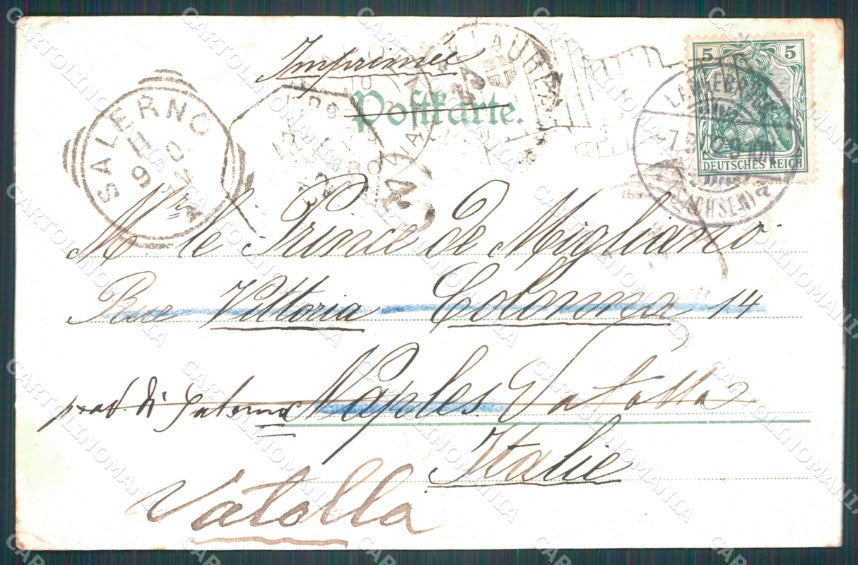 Imprimée
Postkarte.
5 5
DEUTSCHES REICH
SALERNO
11
9
LAUREANA
Mr. le Prince de Migliano
Rue Vittoria - Colonna 14
Naples Vatolla
prov di Salerno
Italie
Vatolla
CARTOLINOMANIA